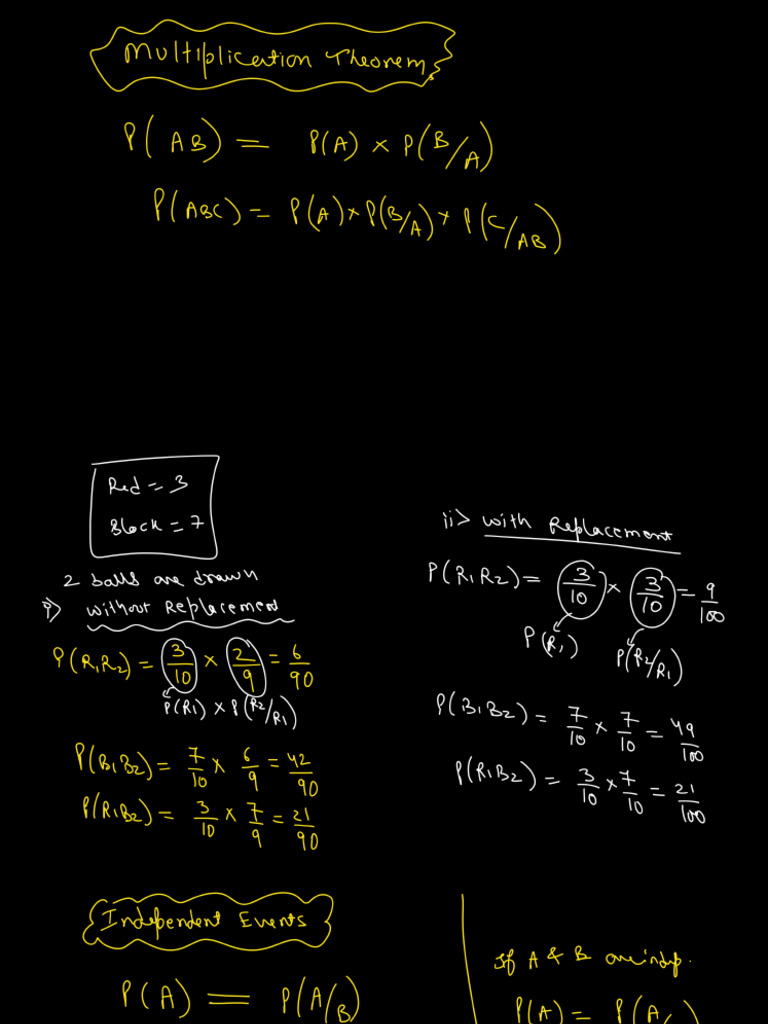 Multiplication Theorem
P(AB) = P(A) × P(B/A)
P(ABC) = P(A) × P(B/A) × P(C/AB)
Red = 3
Black = 7
2 balls are drawn
i> without Replacement
P(R1R2) = 3/10 × 2/9 = 6/90
P(R1) × P(R2/R1)
P(B1B2) = 7/10 × 6/9 = 42/90
P(R1B2) = 3/10 × 7/9 = 21/90
ii> with Replacement
P(R1R2) = 3/10 × 3/10 = 9/100
P(R1) P(R2/R1)
P(B1B2) = 7/10 × 7/10 = 49/100
P(R1B2) = 3/10 × 7/10 = 21/100
Independent Events
P(A) = P(A/B)
If A & B are indep.
P(A) = P(A/